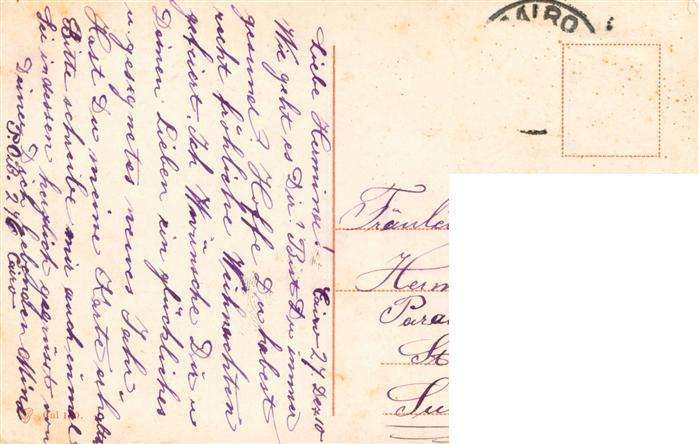 Cairo 27 Dez 10
Liebe Hermine!
Wie geht es Dir? Bist Du immer
gesund? Hoffe Du habest
recht fröhliche Weihnachten
gefeiert. Ich wünsche Dir u
Deinen Lieben ein glückliches
u gesegnetes neues Jahr.
Hast Du meine Karte erhalten
Bitte schreibe mir auch einmal
Sei indessen herzlich gegrüsst von
Deiner Dich liebenden Mina
P.O.B. 240 Cairo
CAIRO
Fräulei
Herm
Para
St